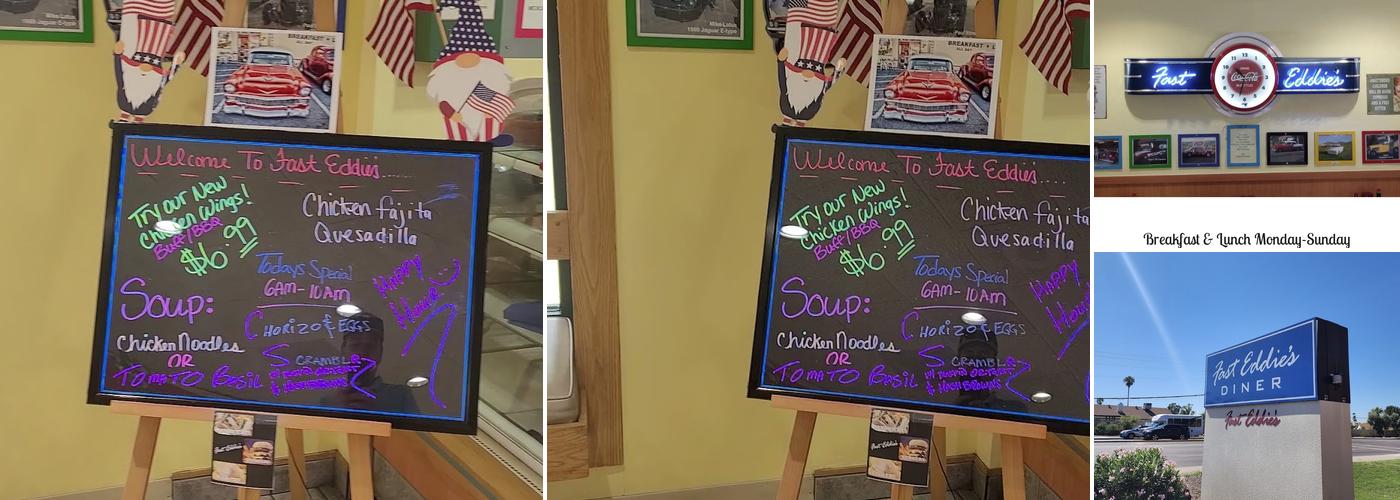 Mike-Lotus
1969 Jaguar E-type
BREAKFAST
ALL DAY
Welcome To Fast Eddie's.....
Try our New
Chicken Wings!
Buff/BBQ
$6.99
Chicken Fajita
Quesadilla
Todays Special
6AM-10AM
Happy
Hour
Soup:
Chicken Noodles
OR
Tomato Basil
Chorizo & EGGS
SCRAMBLE
& HASHBROWNS
Fast Eddie's
Mike-Lotus
1969 Jaguar E-type
BREAKFAST
ALL DAY
Welcome To Fast Eddie's....
Try our New
Chicken Wings!
Buff/BBQ
$6.99
Chicken Fajita
Quesadilla
Todays Special
6AM-10AM
Happy
Hour
Soup:
Chicken Noodles
OR
Tomato Basil
Chorizo & EGGS
SCRAMBLE
& HASHBROWNS
Fast Eddie's
Fast Coca-Cola Eddie's
Breakfast & Lunch Monday-Sunday
Fast Eddie's
DINER
Fast Eddie's